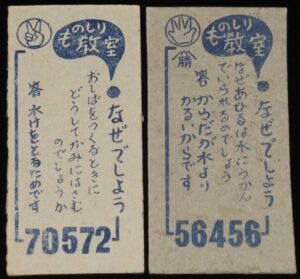 ものしり
教室
なぜでしょう
おしばをつくるときに
どうしてかみにはさむ
のでしょうか
答 水けをとるためです
70572
ものしり
教室
勝
なぜでしょう
なぜあひるは水にうかん
でいられるのでしょう
答 からだが水より
かるいからです
56456